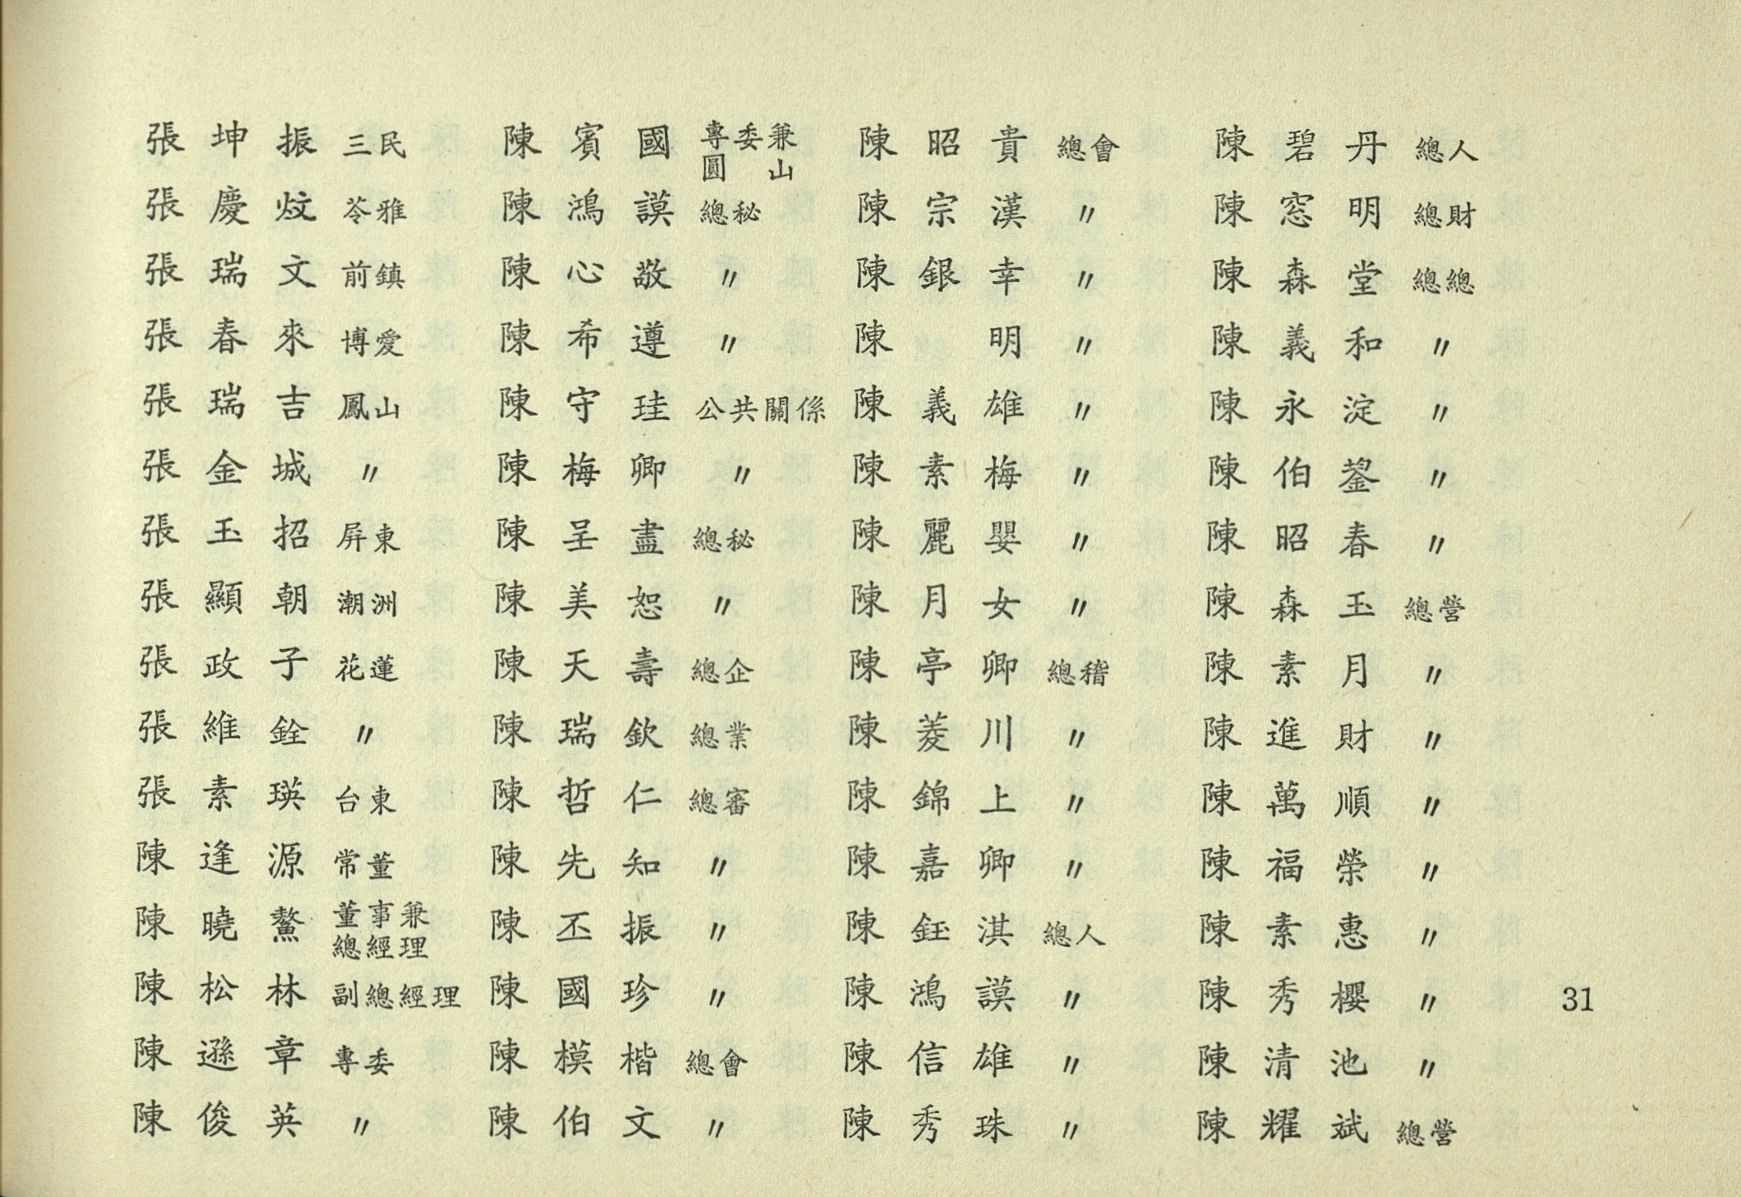 張坤振 三民
張慶炆 苓雅
張瑞文 前鎮
張春來 博愛
張瑞吉 鳳山
張金城 〃
張玉招 屏東
張顯朝 潮洲
張政子 花蓮
張維銓 〃
張素瑛 台東
陳逢源 常董
陳曉鰲 董事兼
總經理
陳松林 副總經理
陳遜章 專委
陳俊英 〃
陳賓國 專委兼
圓山
陳鴻謨 總秘
陳心敬 〃
陳希遵 〃
陳守珪 公共關係
陳梅卿 〃
陳呈盡 總秘
陳美恕 〃
陳天壽 總企
陳瑞欽 總業
陳哲仁 總審
陳先知 〃
陳丕振 〃
陳國珍 〃
陳模楷 總會
陳伯文 〃
陳昭貴 總會
陳宗漢 〃
陳銀幸 〃
陳 明 〃
陳義雄 〃
陳素梅 〃
陳麗嬰 〃
陳月女 〃
陳亭卿 總稽
陳菱川 〃
陳錦上 〃
陳嘉卿 〃
陳鈺淇 總人
陳鴻謨 〃
陳信雄 〃
陳秀珠 〃
陳碧丹 總人
陳窓明 總財
陳森堂 總總
陳義和 〃
陳永淀 〃
陳伯蓥 〃
陳昭春 〃
陳森玉 總營
陳素月 〃
陳進財 〃
陳萬順 〃
陳福榮 〃
陳素惠 〃
陳秀櫻 〃
陳清池 〃
陳耀斌 總營
31